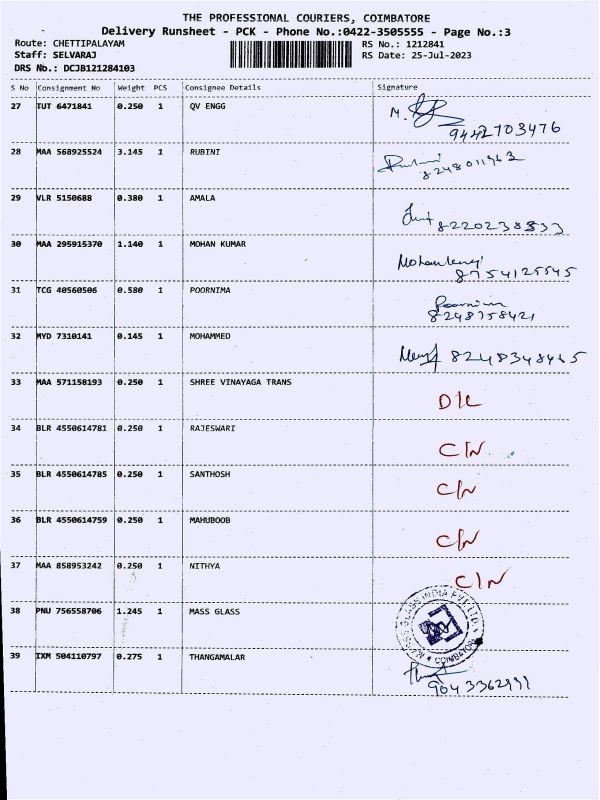 THE PROFESSIONAL COURIERS, COIMBATORE
Delivery Runsheet - PCK - Phone No.:0422-3505555 - Page No.:3
Route: CHETTIPALAYAM
RS No.: 1212841
Staff: SELVARAJ
RS Date: 25-Jul-2023
DRS No.: DCJB121284103
S No Consignment No Weight PCS Consignee Details Signature
27 TUT 6471841 0.250 1 QV ENGG
9442703476
28 MAA 568925524 3.145 1 RUBINI
29 VLR 5150688 0.380 1 AMALA
30 MAA 295915370 1.140 1 MOHAN KUMAR
8754125545
31 TCG 40560506 0.580 1 POORNIMA
8248758421
32 MYD 7310141 0.145 1 MOHAMMED
33 MAA 571158193 0.250 1 SHREE VINAYAGA TRANS
D/L
34 BLR 4550614781 0.250 1 RAJESWARI
C/N
35 BLR 4550614785 0.250 1 SANTHOSH
C/N
36 BLR 4550614759 0.250 1 MAHUBOOB
C/N
37 MAA 858953242 0.250 1 NITHYA
C/N
38 PNU 756558706 1.245 1 MASS GLASS
MASS GLASS INDIA PVT LTD. * COIMBATORE
39 IXM 504110797 0.275 1 THANGAMALAR